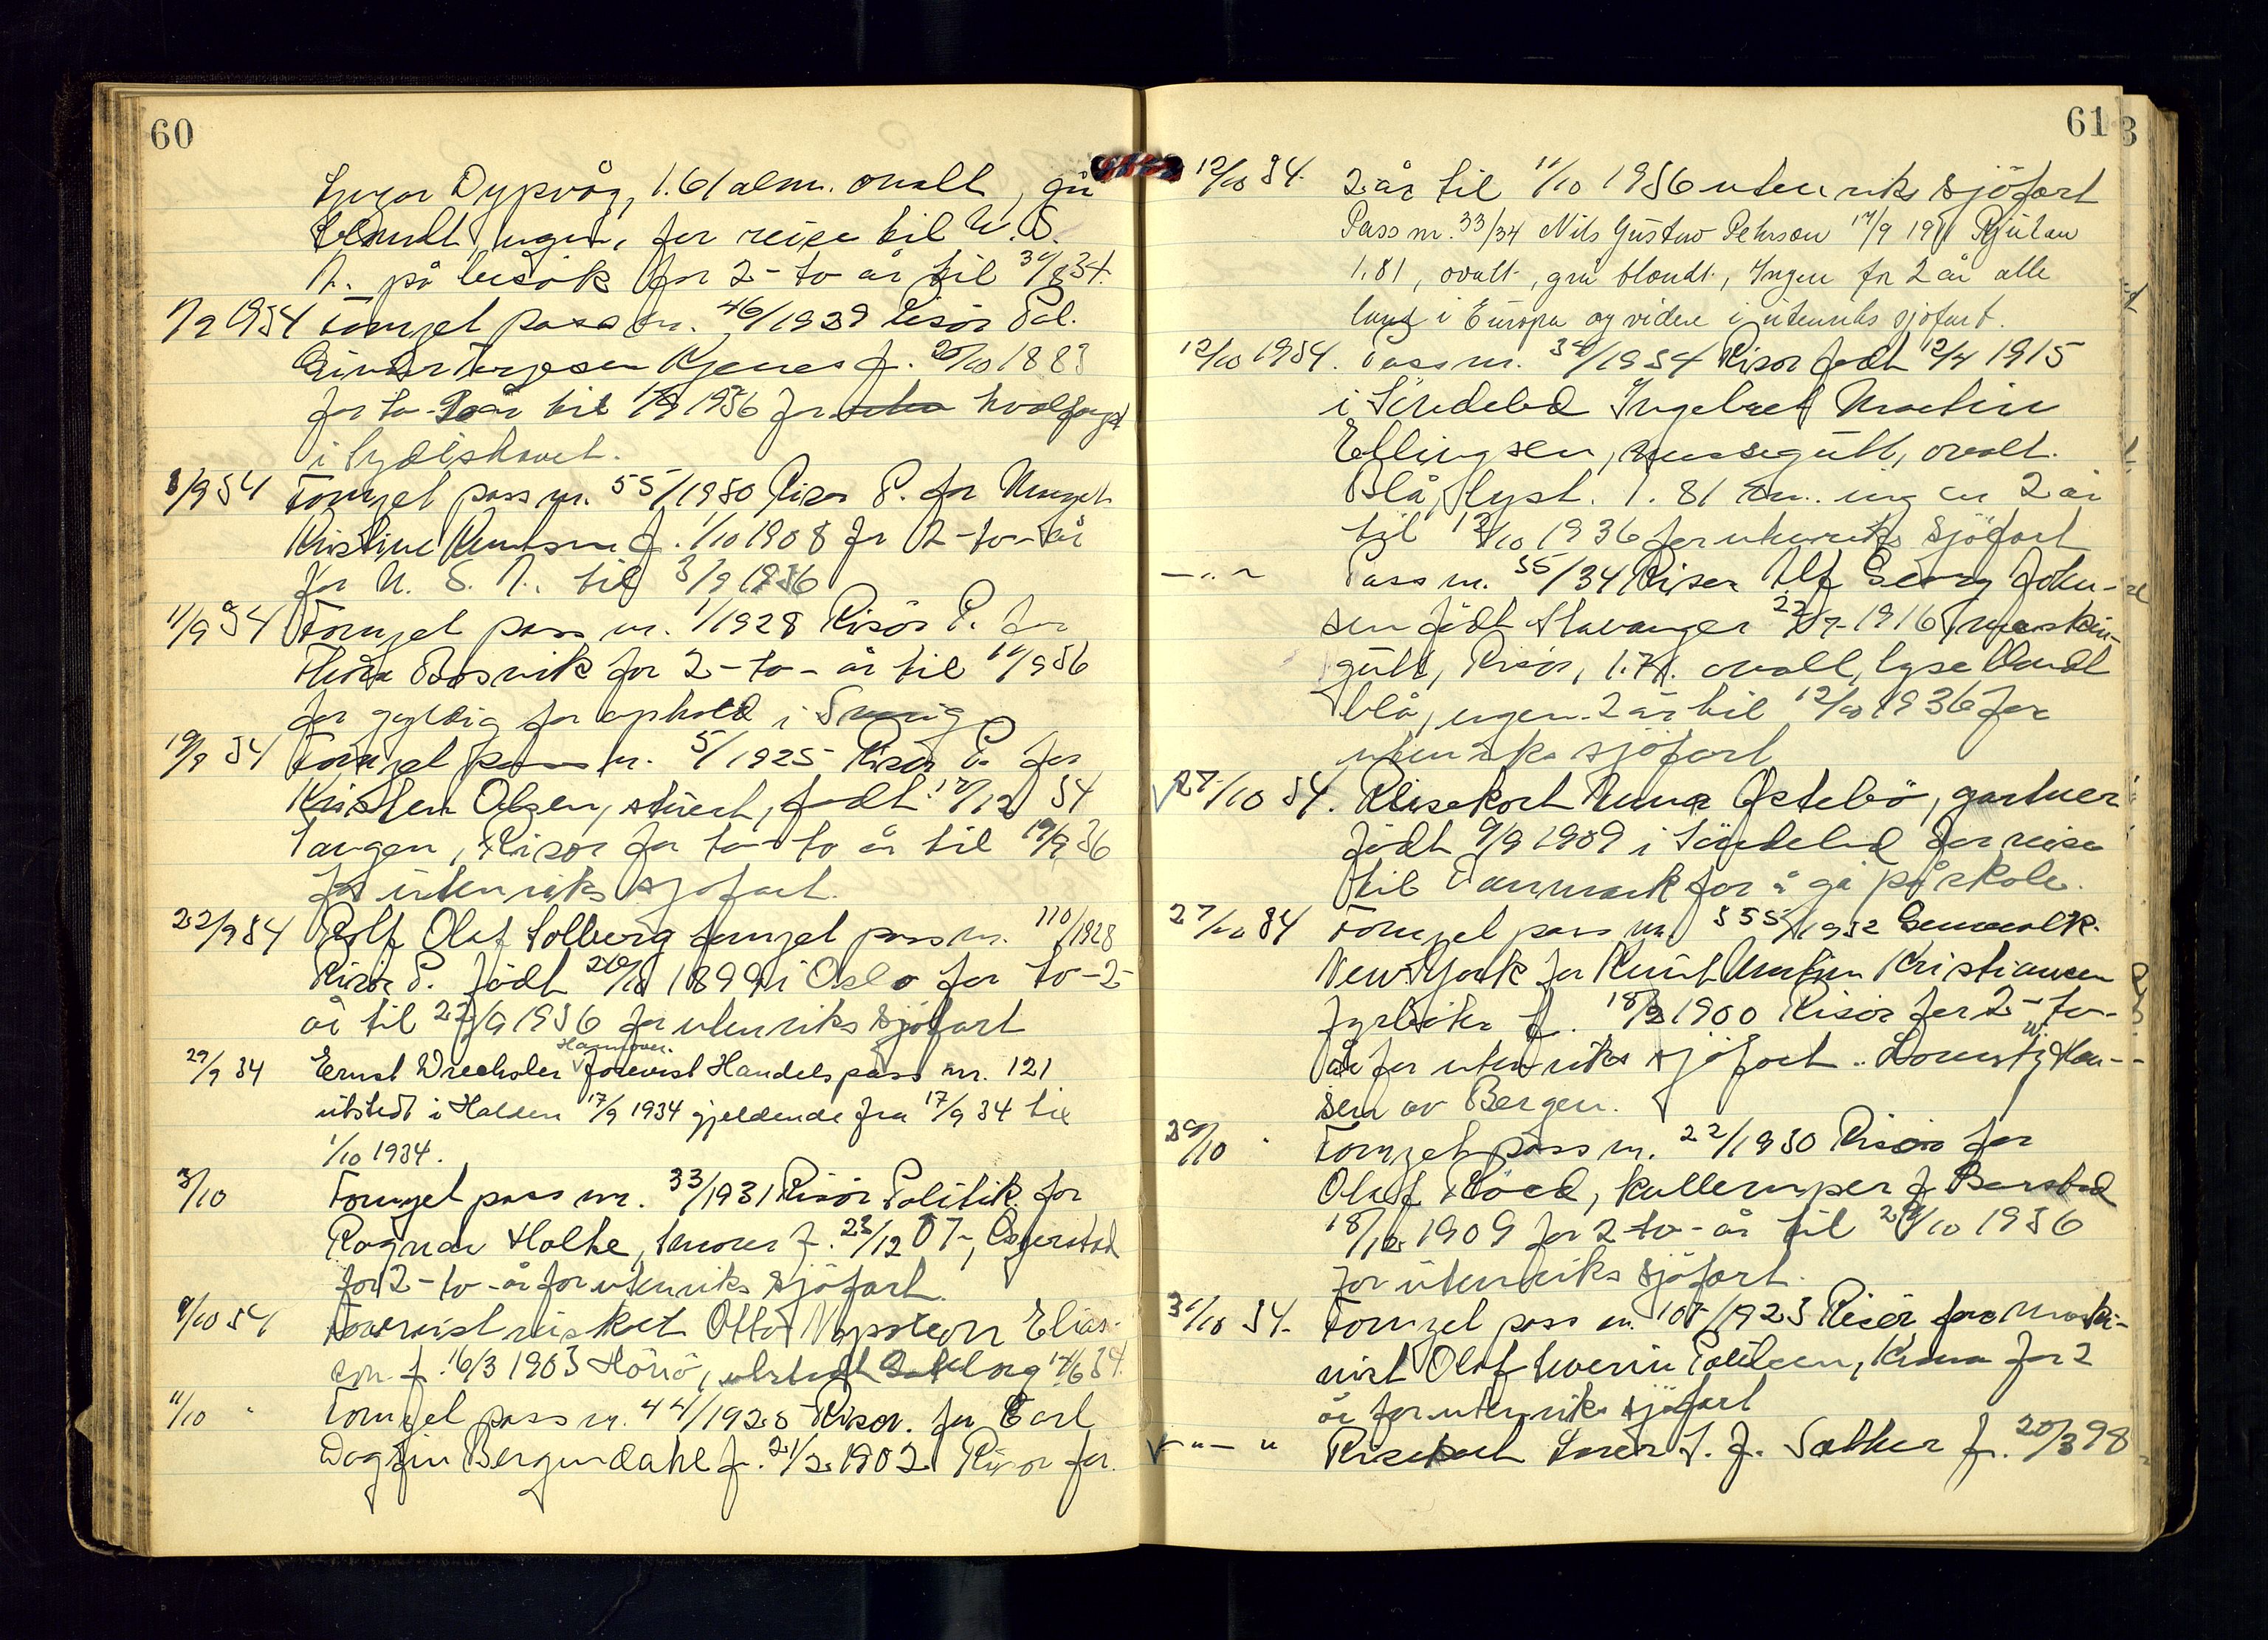 60
Dypvåg, 1.61 alm. ovalt, grå
blondt, ingen, for reise til U.S.
A. på besök for 2-to år til 31/8 34.
1/9 1934 Fornyet pass nr. 46/1929 Risör Pol.
Einar Terjesen Kjenes f. 20/10 1883
for to-2 år til 1/9 1936 for hvalfangst
i Sydishavet.
3/9 34 Fornyet pass nr. 55/1930 Risør P. for
Kristine Knutsen f. 1/10 1908 for 2-to-år
for U.S.A. til 3/9 1936
11/9 34 Fornyet pass nr. 1/1928 Risör P. for
Thora Bosvik for 2-to-år til 11/9 36
for gyldig for ophold i Sverig
19/9 34 Fornyet pass nr. 5/1925 Risør P. for
Kristen Olsen, stuert, födt 17/12 54
Tangen, Risør for to-to år til 19/9 36
for utenriks sjøfart.
22/9 34 Rolf Olaf Solberg fornyet pass nr. 110/1928
Risör P. födt 26/10 1899 i Oslo for to-2-
år til 22/9 1936 for utenriks sjöfart
Hannover.
29/9 34 Ernst Wrechsler forevist Handelspass nr. 121
utstedt i Halden 17/9 1934 gjeldende fra 17/9 34 til
1/10 1934.
3/10 Fornyet pass nr. 33/1931 Risör Politik. for
Ragnar Holte, f. 23/12 07,
for 2-to-år for utenriks sjöfart.
9/10 34 Forevist Otto Napoleon Elias-
son f. 16/3 1903 Hönö, utstedt 14/6 34.
11/10 " Fornyet pass nr. 44/1925 Risør. for Carl
Dagfin Bergendahl f. 21/2 1902 Risør for
61
12/10 34. 2 år til 11/10 1936 utenriks sjöfart
Pass nr. 33/34 Nils Gustav Pehrson 17/9 1911 Rjukan
1.81, ovalt, grå blondt, Ingen for 2 år alle
land i Europa og videre i utenriks sjøfart.
12/10 1934. Pass nr. 34/1934 Risør født 12/4 1915
i Söndeled Ingebret Martin
Ellingsen, messegutt, ovalt.
Blå, lyst. 1.81 cm. ing en 2 år
til 12/10 1936 for utenriks sjöfart
— " — Pass nr. 35/34 Risør Alf Georg John-
sen födt Stavanger 22/7 1916, maskin-
gutt, Risör, 1.71. ovalt, lyseblondt
blå, ingen. 2 år til 12/10 1936 for
utenriks sjöfart
27/10 34. Reisekort Anna Östebö, gartner
födt 9/9 1909 i Söndeled for reise
til Danmark for å gå på skole.
27/10 34 Fornyet pass nr. 555/1932 Generalk.
New York for Knut Martin Kristiansen
fyrböter f. 18/3 1900 Risør for 2-to-
år for utenriks sjöfart.
sen av Bergen.
29/10 " Fornyet pass nr. 22/1930 Risör for
Olaf Röed, kullemper f.
18/12 1909 for 2-to-år til 29/10 1936
for utenriks sjöfart.
31/10 34. Fornyet pass nr. 107/1923 Risör for Maski-
nist Olaf Severin Paulsen, for 2
år for utenriks sjöfart
— " — " Reisekort f. 20/3 98